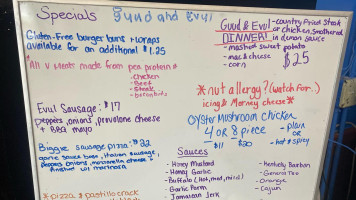 Specials
good and Evil
Gluten-Free burger buns + wraps
available for an additional $1.25
*All v Meats made from pea protein*
- Chicken
- Beef
- Steak
- breakfasts
Evul Sausage: $17
Peppers, onions, provolone cheese
+ BBQ mayo
Biggie Sausage pizza: $22
garlic sauce base, Italian sausage,
peppers, onions, mozzarella cheese +
marinara
*pizza & pastillo crack
Good & Evil
DINNER!
- country Fried Steak
or chicken, smothered
in onion sauce
- mashed sweet potato
- mac & cheese
- corn
$25
*nut allergy? (watch for..)
icing & Marney cheese*
OYSTER Mushroom Chicken
4 OR 8 piece
$11
$20
- plain
or
- hot & spicy
Sauces
- Honey Mustard
- Honey Garlic
- Buffalo (hot, med, mild)
- Garlic Parm
- Jamaican Jerk
- Kentucky Bourbon
- General Tso
- Orange
- Cajun